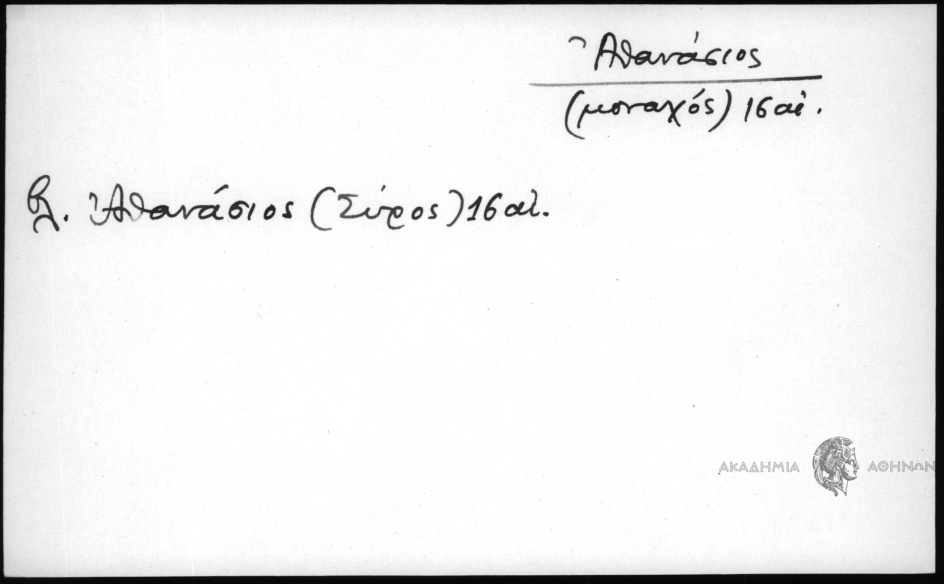 Ἀθανάσιος
(μοναχός) 16 αἰ.
βλ. Ἀθανάσιος (Σύρος) 16 αἰ.
ΑΚΑΔΗΜΙΑ ΑΘΗΝΩΝ